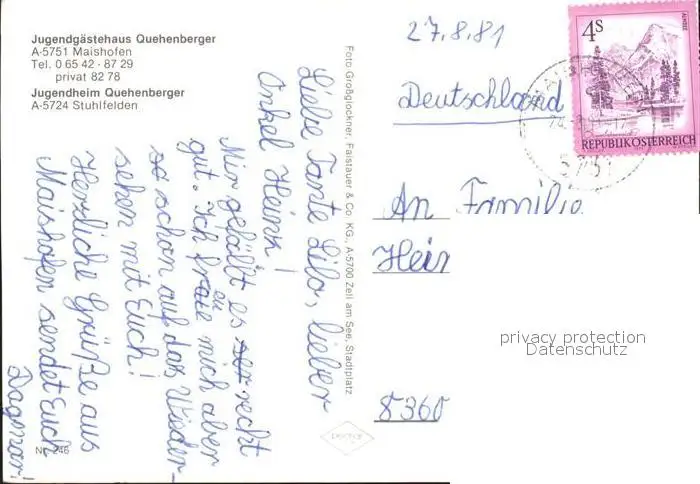 Jugendgästehaus Quehenberger
A-5751 Maishofen
Tel. 0 65 42 · 87 29
privat 82 78
Jugendheim Quehenberger
A-5724 Stuhlfelden
Liebe Tante Lilo, lieber
Onkel Heinz!
Mir gefällt es recht
gut. Ich freue mich aber
so schon auf das Wieder-
sehen mit Euch!
Herzliche Grüße aus
Maishofen sendet Euch
Dagmar
Nr. 246
Foto Großglockner, Falstauer & Co. KG., A-5700 Zell am See, Stadtplatz
27.8.81
Deutschland
An Familie
Hein
8360
4S
REPUBLIK ÖSTERREICH
5751
privacy protection
Datenschutz